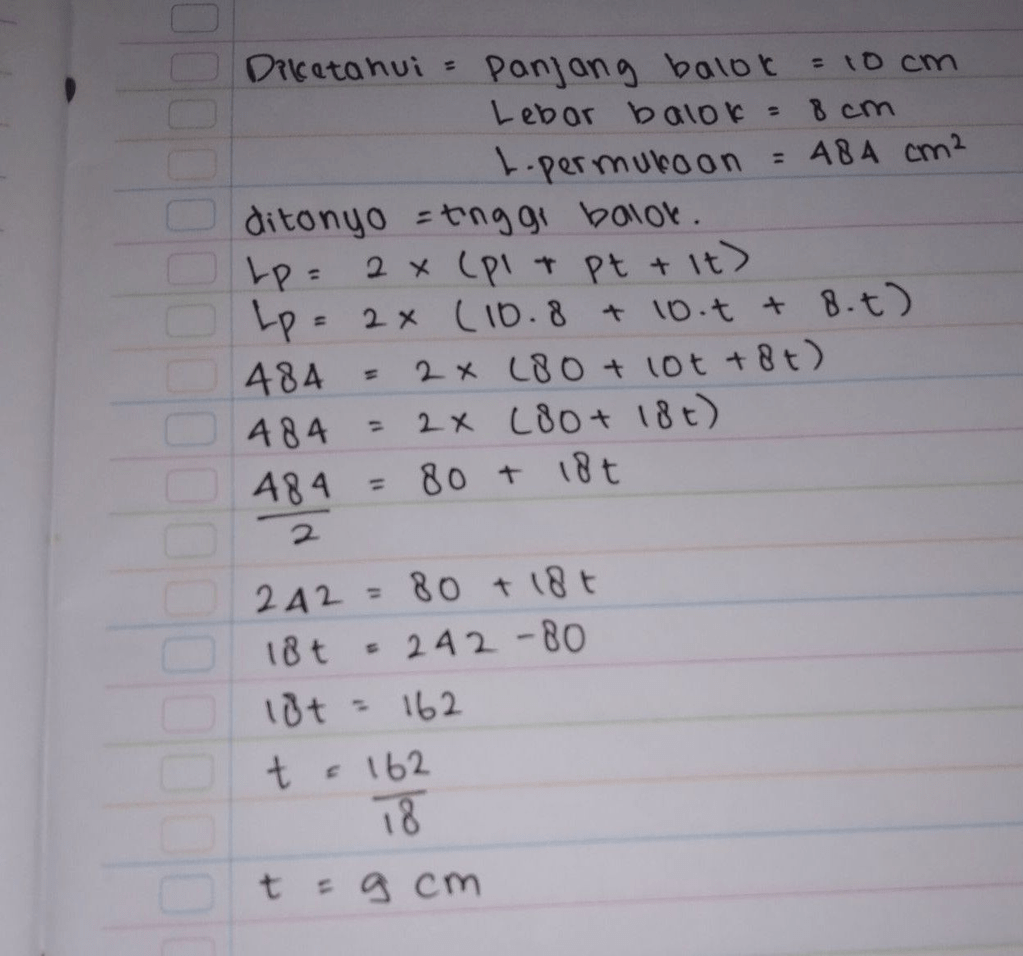 Diketahui = Panjang balok = 10 cm
Lebar balok = 8 cm
L.permukaan = 484 cm²
ditanya = tinggi balok.
Lp = 2 x (pl + pt + lt)
Lp = 2 x (10.8 + 10.t + 8.t)
484 = 2 x (80 + 10t + 8t)
484 = 2 x (80 + 18t)
484 = 80 + 18t
2
242 = 80 + 18t
18t = 242 - 80
18t = 162
t = 162
18
t = 9 cm